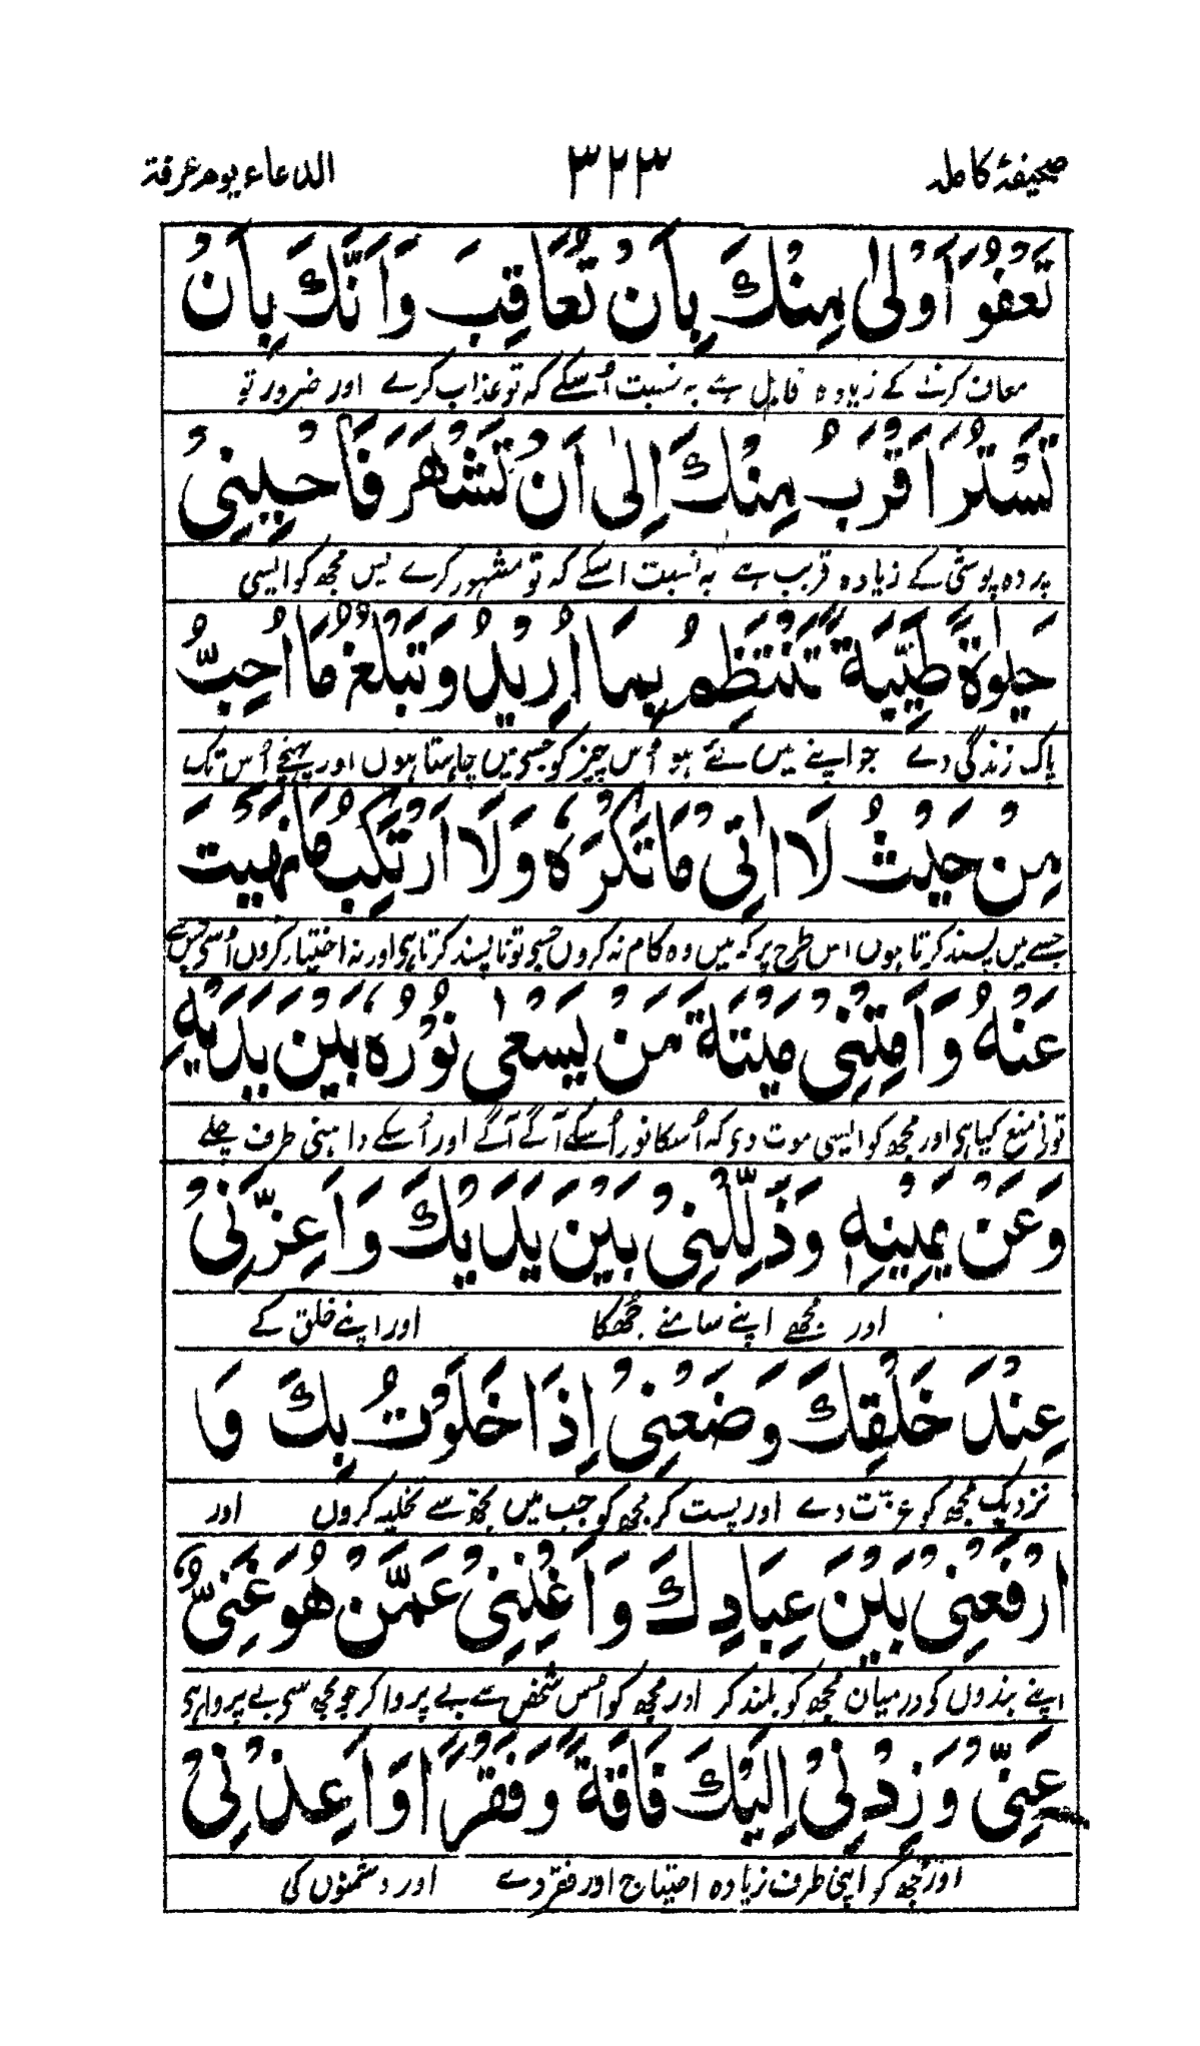 صحیفۂ کاملہ ۳۲۳ الدعاء یوم عرفۃ
تَعْفُوَ اَوْلٰی مِنْكَ بِاَنْ تُعَاقِبَ وَاَنَّكَ بِاَنْ
معاف کرنے کے زیادہ قابل ہے بہ نسبت اُسکے کہ تو عذاب کرے اور ضرور تو
تَسْتُرَ اَقْرَبُ مِنْكَ اِلٰی اَنْ تَشْهَرَ فَاَحْیِنِیْ
پردہ پوشی کے زیادہ قریب ہے بہ نسبت اسکے کہ تو مشہور کرے پس مجھ کو ایسی
حَیٰوةً طَیِّبَةً تَنْتَظِمُ بِمَا اُرِیْدُ وَتَبْلُغُ مَا اُحِبُّ
پاک زندگی دے جو اپنے میں لئے ہو اُس چیز کو جسے میں چاہتا ہوں اور پہنچے اُس تک
مِنْ حَیْثُ لَا اٰتِیْ مَا تَكْرَهُ وَلَا اَرْتَكِبُ مَا نَهَیْتَ
جسے میں پسند کرتا ہوں اس طرح پر کہ میں وہ کام نہ کروں جسے تو ناپسند کرتا ہی اور نہ اختیار کروں اُسے جس سے
عَنْهُ وَاَمِتْنِیْ مِیْتَةَ مَنْ یَسْعٰی نُوْرُهٗ بَیْنَ یَدَیْهِ
تونے منع کیا ہی اور مجھ کو ایسی موت دے کہ اُسکا نور اُسکے آگے آگے اور اُسکے داہنی طرف چلے
وَعَنْ یَمِیْنِهٖ وَذَلِّلْنِیْ بَیْنَ یَدَیْكَ وَاَعِزَّنِیْ
اور مجھے اپنے سامنے جھکا اور اپنے خلق کے
عِنْدَ خَلْقِكَ وَضَعْنِیْ اِذَا خَلَوْتُ بِكَ وَ
نزدیک مجھ کو عزت دے اور پست کر مجھ کو جب میں تجھ سے تخلیہ کروں اور
ارْفَعْنِیْ بَیْنَ عِبَادِكَ وَاَغْنِنِیْ عَمَّنْ هُوَ غَنِیٌّ
اپنے بندوں کے درمیان مجھ کو بلند کر اور مجھ کو اُس شخص سے بے پروا کر جو مجھ سے بے پروا ہی
عَنِّیْ وَزِدْنِیْ اِلَیْكَ فَاقَةً وَفَقْرًا وَاَعِذْنِیْ
اور مجھ کو اپنی طرف زیادہ احتیاج اور فقر دے اور دشمنوں کی